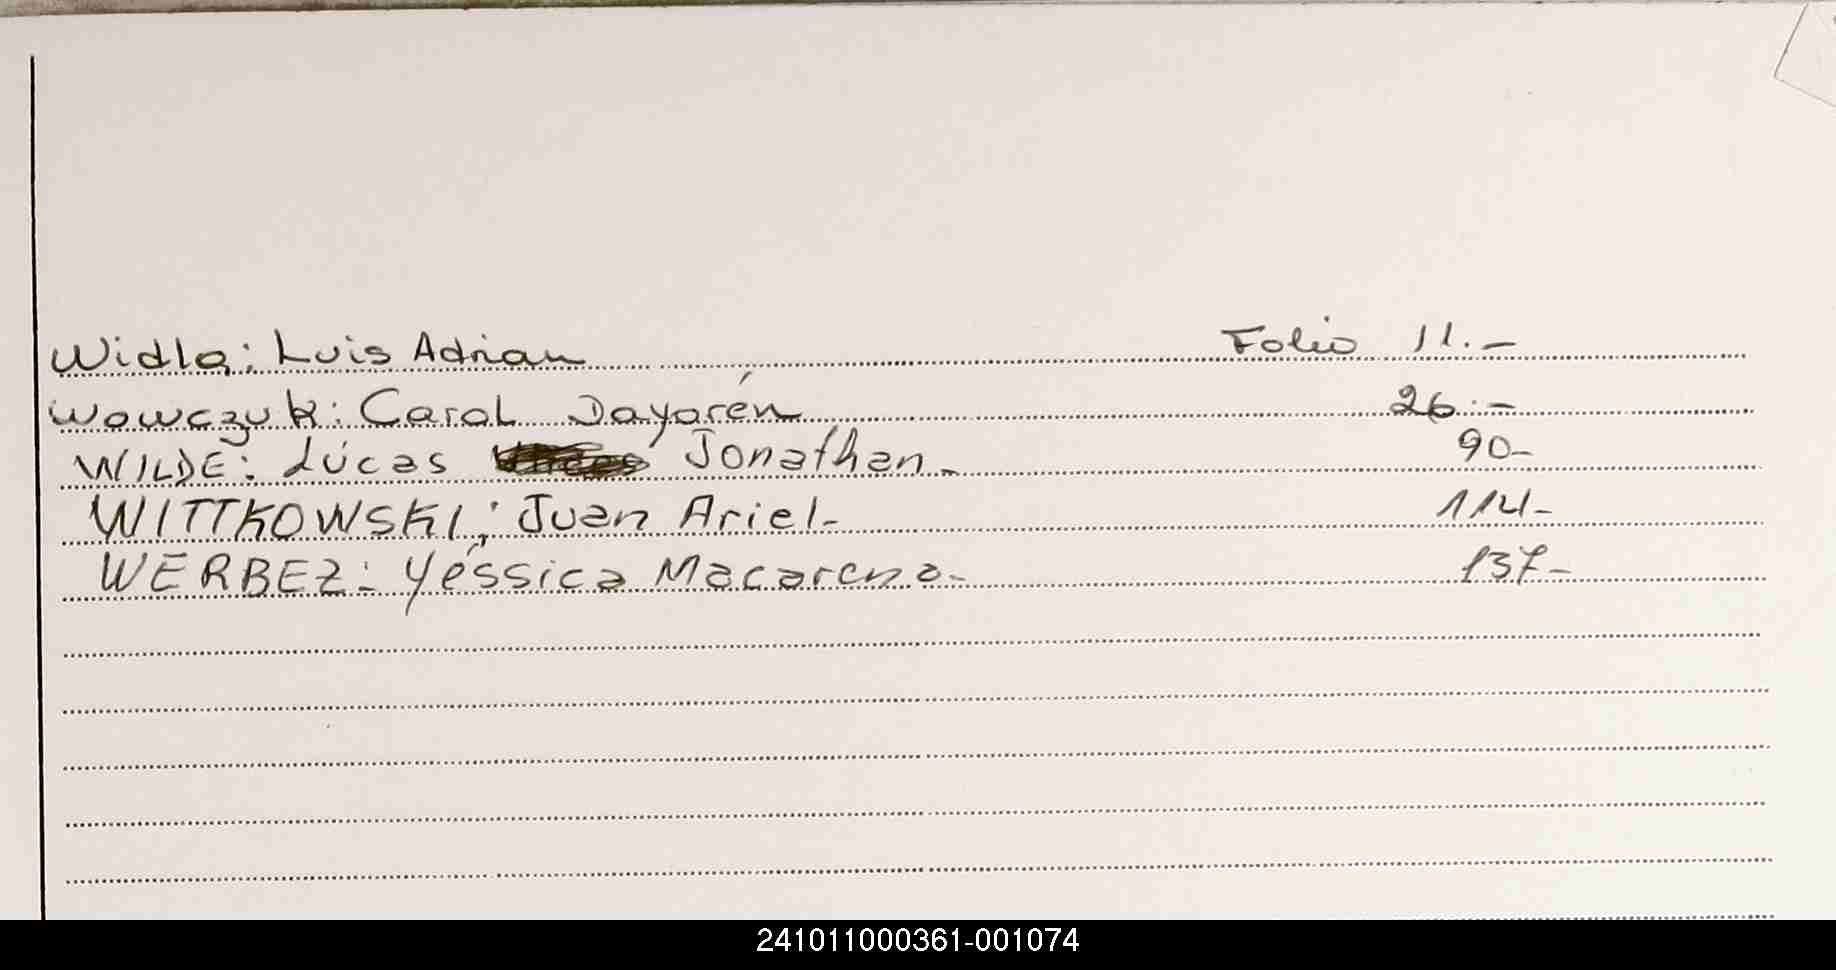 Widla; Luis Adrian Folio 11.-
Wowczyk: Carol Dayarén 26.-
WILDE: Lúcas Jonathan- 90-
WITTKOWSKI; Juan Ariel- 114-
WERBEZ: Yéssica Macarena- 137-
241011000361-001074